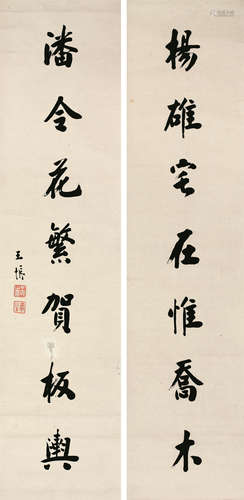 楊雄宅在惟喬木
潘令花繁賀板輿